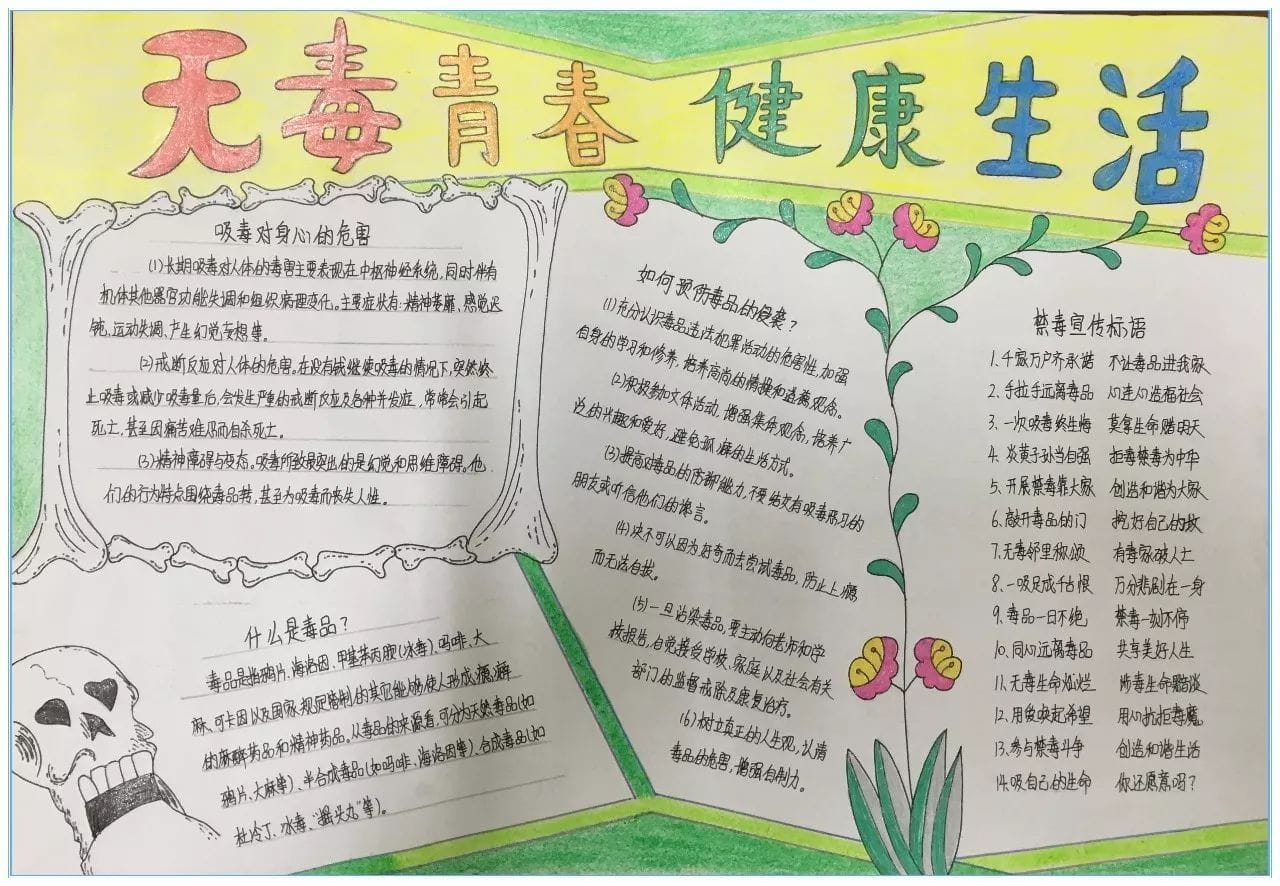 无毒青春 健康生活
吸毒对身心的危害
(1)长期吸毒对人体的毒害主要表现在中枢神经系统,同时伴有
机体其他器官功能失调和组织病理变化。主要症状有:精神萎靡、感觉迟
钝、运动失调、产生幻觉妄想等。
(2)戒断反应对人体的危害。在没有或继续吸毒的情况下,突然终
止吸毒或减少吸毒量后,会发生严重的戒断反应及各种并发症,常常会引起
死亡,甚至因痛苦难忍而自杀死亡。
(3)精神障碍与变态。吸毒所致最突出的是幻觉和思维障碍。他
们的行为特点围绕毒品转,甚至为吸毒而丧失人性。
什么是毒品?
毒品是指鸦片、海洛因、甲基苯丙胺(冰毒)、吗啡、大
麻、可卡因以及国家规定管制的其它能够使人形成瘾癖
的麻醉药品和精神药品。从毒品的来源看,可分为天然毒品(如
鸦片、大麻等)、半合成毒品(如吗啡、海洛因等)、合成毒品(如
杜冷丁、冰毒、“摇头丸”等)。
如何预防毒品的侵袭?
(1)充分认识毒品违法犯罪活动的危害性,加强
自身的学习和修养,培养高尚的情操和道德观念。
(2)积极参加文体活动,增强集体观念,培养广
泛的兴趣和爱好,避免孤僻的生活方式。
(3)提高对毒品的防御能力,不要结交有吸毒恶习的
朋友或听信他们的谗言。
(4)决不可以因为好奇而去尝试毒品,防止上瘾
而无法自拔。
(5)一旦沾染毒品,要主动向老师和学
校报告,自觉接受学校、家庭以及社会有关
部门的监督戒除及康复治疗。
(6)树立真正的人生观,认清
毒品的危害,增强自制力。
禁毒宣传标语
1.千家万户齐承诺 不让毒品进我家
2.手拉手远离毒品 心连心造福社会
3.一次吸毒终生悔 莫拿生命赌明天
4.炎黄子孙当自强 拒毒禁毒为中华
5.开展禁毒靠大家 创造和谐为大家
6.敲开毒品的门 挖好自己的坟
7.无毒邻里称颂 有毒家破人亡
8.一吸足成千古恨 万分悲剧在一身
9.毒品一日不绝 禁毒一刻不停
10.同心远离毒品 共享美好人生
11.无毒生命灿烂 涉毒生命黯淡
12.用爱唤起希望 用心抗拒毒魔
13.参与禁毒斗争 创造和谐生活
14.吸自己的生命 你还愿意吗?